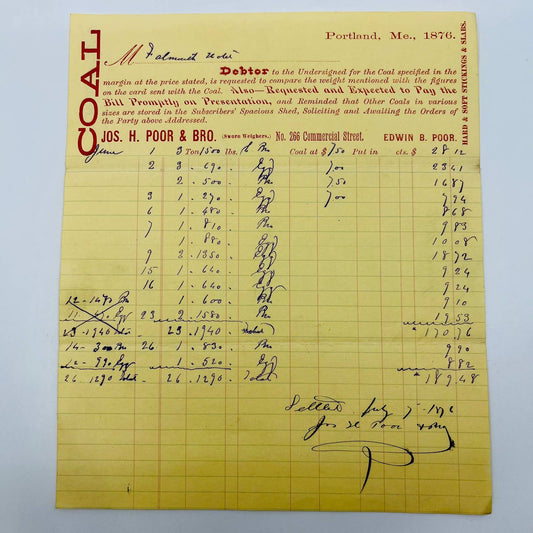 COAL
HARD & SOFT STICKINGS & SLABS.
Portland, Me., 1876.
M Falmouth Hotel
Debtor to the Undersigned for the Coal specified in the
margin at the price stated, is requested to compare the weight mentioned with the figures
on the card sent with the Coal. Also—Requested and Expected to Pay the
Bill Promptly on Presentation, and Reminded that Other Coals in various
sizes are stored in the Subscribers' Spacious Shed, Soliciting and Awaiting the Orders of
the Party above Addressed.
JOS. H. POOR & BRO. (Sworn Weighers.) No. 266 Commercial Street. EDWIN B. POOR.
June 1 3 Ton 1500 lbs. Coal at $ 7.50 Put in cts. $ 28 12
2 3 . 690 . Egg 7.00 23 41
2 . 500 . 7.50 16 87
3 1 . 290 . Egg 7.00
6 1 . 480 . 8 68
7 1 . 810 . 9 83
1 . 880 . Egg 10 08
9 2 . 1350 . Egg 18 72
15 1 . 640 . Egg 9 24
16 1 . 640 . Egg 9 24
1 . 600 . 9 10
23 2 . 1580 . 19 53
23 . 1940 23 . 1940 . 170 76
26 1 . 830 . 9 90
12 . 990 Egg 1 . 520 . Egg 8 82
26 . 1290 Total 26 . 1290 . Total 189 48
Settled July 7 1876
Jos H Poor & Bro